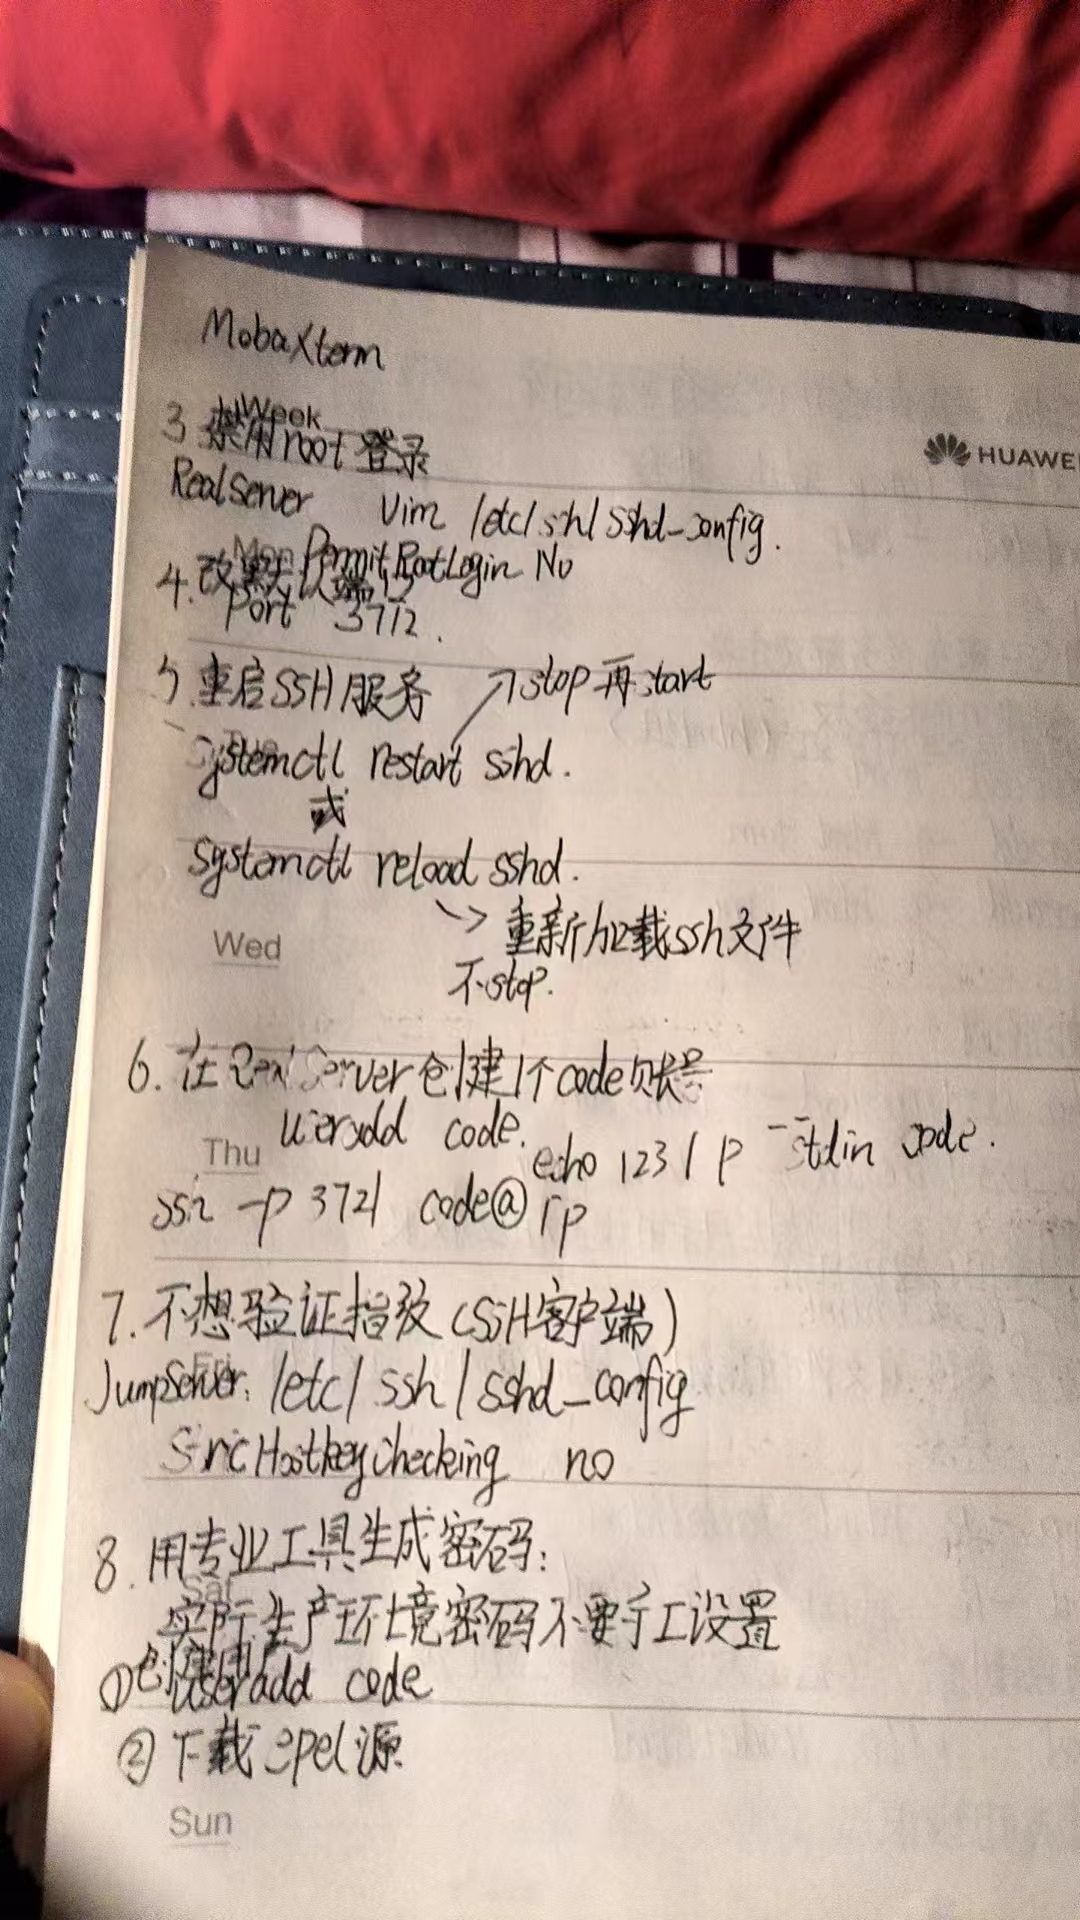 MobaXterm
Week
3 禁用root登录
HUAWEI
RealServer vim /etc/ssh/sshd_config.
Mon PermitRootLogin No
4.改默认端口
Port 3712.
5 重启SSH服务 ↗stop再start
Tue
Systemctl restart sshd.
或
Systemctl reload sshd.
→ 重新加载ssh文件
Wed
不stop.
6. 在RealServer创建1个code账号
useradd code.
Thu
echo 123 | p --stdin code.
ssh -p 3721 code@ip
7.不想验证指纹(SSH客户端)
Fri
JumpServer: /etc/ssh/sshd_config
StricHostkeychecking no
8.用专业工具生成密码:
Sat
实际生产环境密码不要手工设置
①创建用户
useradd code
②下载epel源
Sun